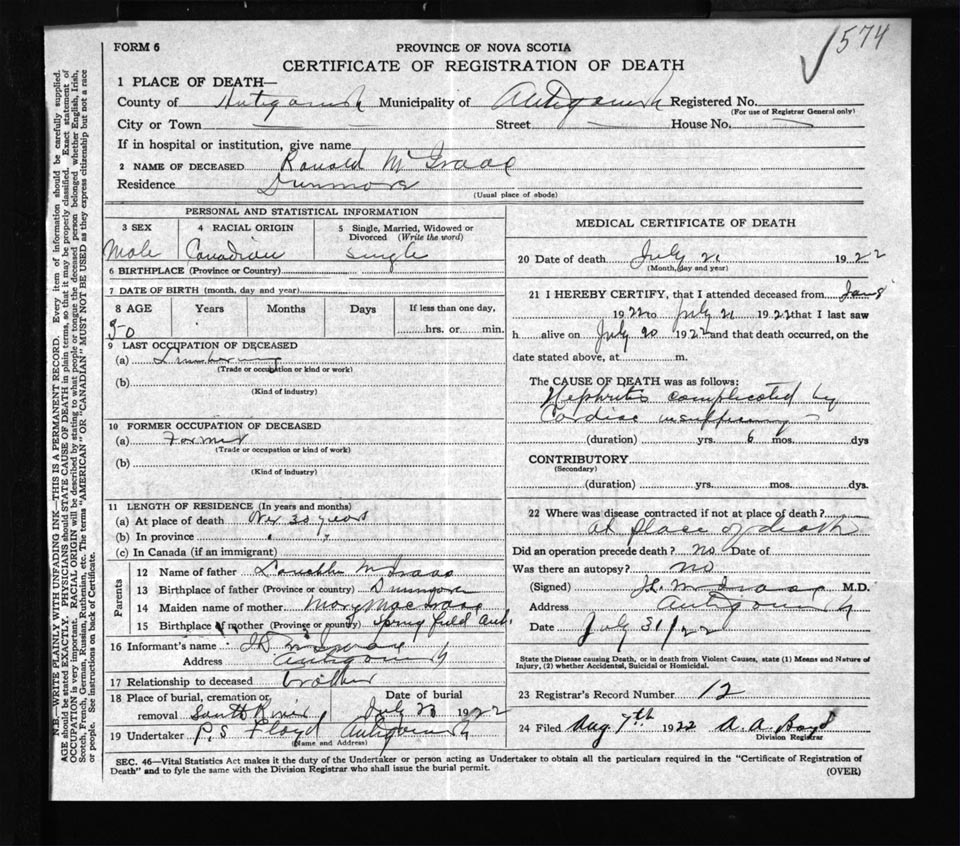 574
FORM 6
PROVINCE OF NOVA SCOTIA
CERTIFICATE OF REGISTRATION OF DEATH
1 PLACE OF DEATH—
County of Antigonish Municipality of Antigonish Registered No.
(For use of Registrar General only)
City or Town Street House No.
If in hospital or institution, give name
2 NAME OF DECEASED Ronald McIsaac
Residence Dunmore
(Usual place of abode)
PERSONAL AND STATISTICAL INFORMATION
3 SEX 4 RACIAL ORIGIN 5 Single, Married, Widowed or Divorced (Write the word)
Male Canadian Single
6 BIRTHPLACE (Province or Country)
7 DATE OF BIRTH (month, day and year)
8 AGE Years Months Days If less than one day,
50 hrs. or min.
9 LAST OCCUPATION OF DECEASED
(a)
(Trade or occupation or kind or work)
(b)
(Kind of industry)
10 FORMER OCCUPATION OF DECEASED
(a) Farmer
(Trade or occupation or kind of work)
(b)
(Kind of industry)
11 LENGTH OF RESIDENCE (In years and months)
(a) At place of death Over 30 years
(b) In province " "
(c) In Canada (if an immigrant)
Parents
12 Name of father Lauchlin McIsaac
13 Birthplace of father (Province or country) Dunmore
14 Maiden name of mother Mary MacIsaac
15 Birthplace of mother (Province or country) Springfield Ant.
16 Informant's name J.D. McIsaac
Address Antigonish
17 Relationship to deceased brother
18 Place of burial, cremation or Date of burial
removal South River July 23 1922
19 Undertaker P.S Floyd Antigonish
(Name and Address)
MEDICAL CERTIFICATE OF DEATH
20 Date of death July 21 1922
(Month, day and year)
21 I HEREBY CERTIFY, that I attended deceased from Jan 8
1922 to July 21 1922 that I last saw
h alive on July 20 1922 and that death occurred, on the
date stated above, at m.
The CAUSE OF DEATH was as follows:
Nephritis complicated by
Cardiac insufficiency
(duration) yrs. 6 mos. dys
CONTRIBUTORY
(Secondary)
(duration) yrs. mos. dys.
22 Where was disease contracted if not at place of death?
at place of death
Did an operation precede death? no Date of
Was there an autopsy? no
(Signed) McIsaac M.D.
Address Antigonish
Date July 31/22
State the Disease causing Death, or in death from Violent Causes, state (1) Means and Nature of
Injury, (2) whether Accidental, Suicidal or Homicidal.
23 Registrar's Record Number 12
24 Filed Aug 7th 1922 A. A. Boyd
Division Registrar
SEC. 46—Vital Statistics Act makes it the duty of the Undertaker or person acting as Undertaker to obtain all the particulars required in the "Certificate of Registration of
Death" and to fyle the same with the Division Registrar who shall issue the burial permit.
(OVER)
N.B.—WRITE PLAINLY WITH UNFADING INK—THIS IS A PERMANENT RECORD. Every item of information should be carefully supplied.
AGE should be stated EXACTLY. PHYSICIANS should STATE CAUSE OF DEATH in plain terms, so that it may be properly classified. Exact statement of
OCCUPATION is very important. RACIAL ORIGIN will be described by stating to what people or tongue the deceased person belonged whether English, Irish,
Scotch, French, German, Russian, Ruthenian, etc. The terms "AMERICAN" OR "CANADIAN" MUST NOT BE USED as they express citizenship but not a race
or people. See instructions on back of Certificate.